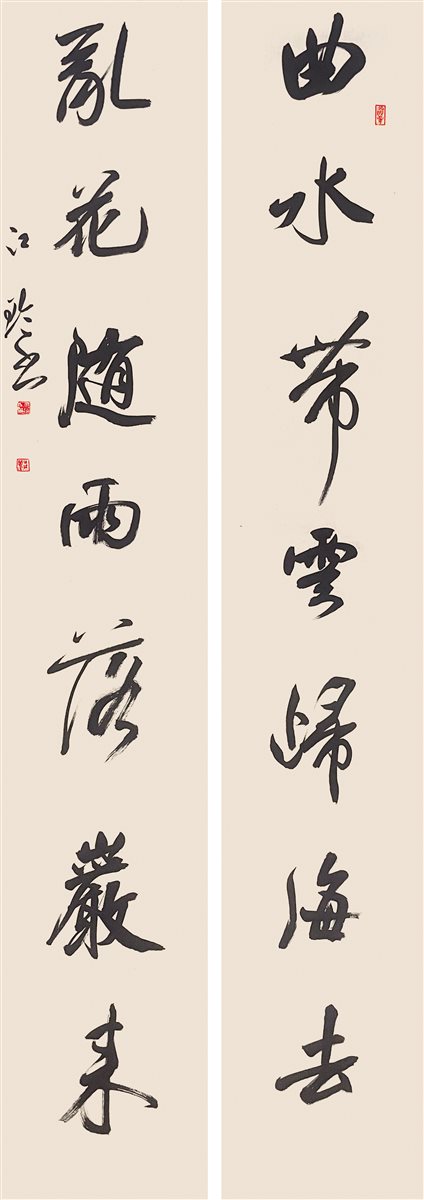 曲水带雲歸海去
亂花随雨落巖来
江